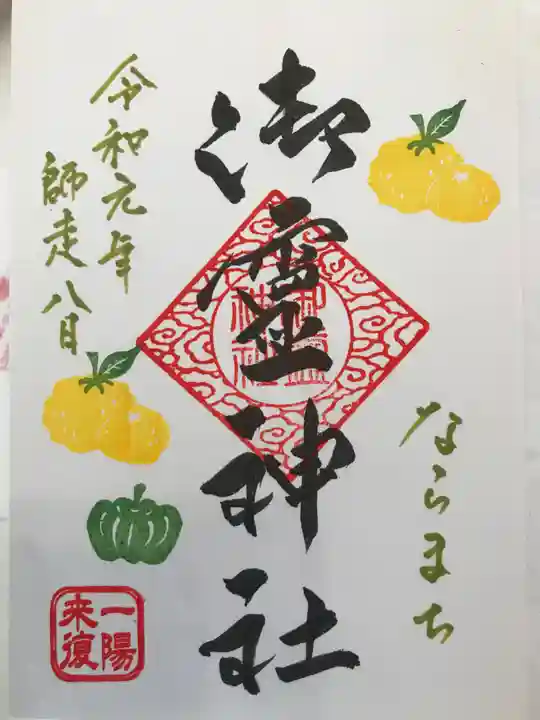 ならまち
御霊神社
御霊
神社
令和元年
師走八日
一陽
来復